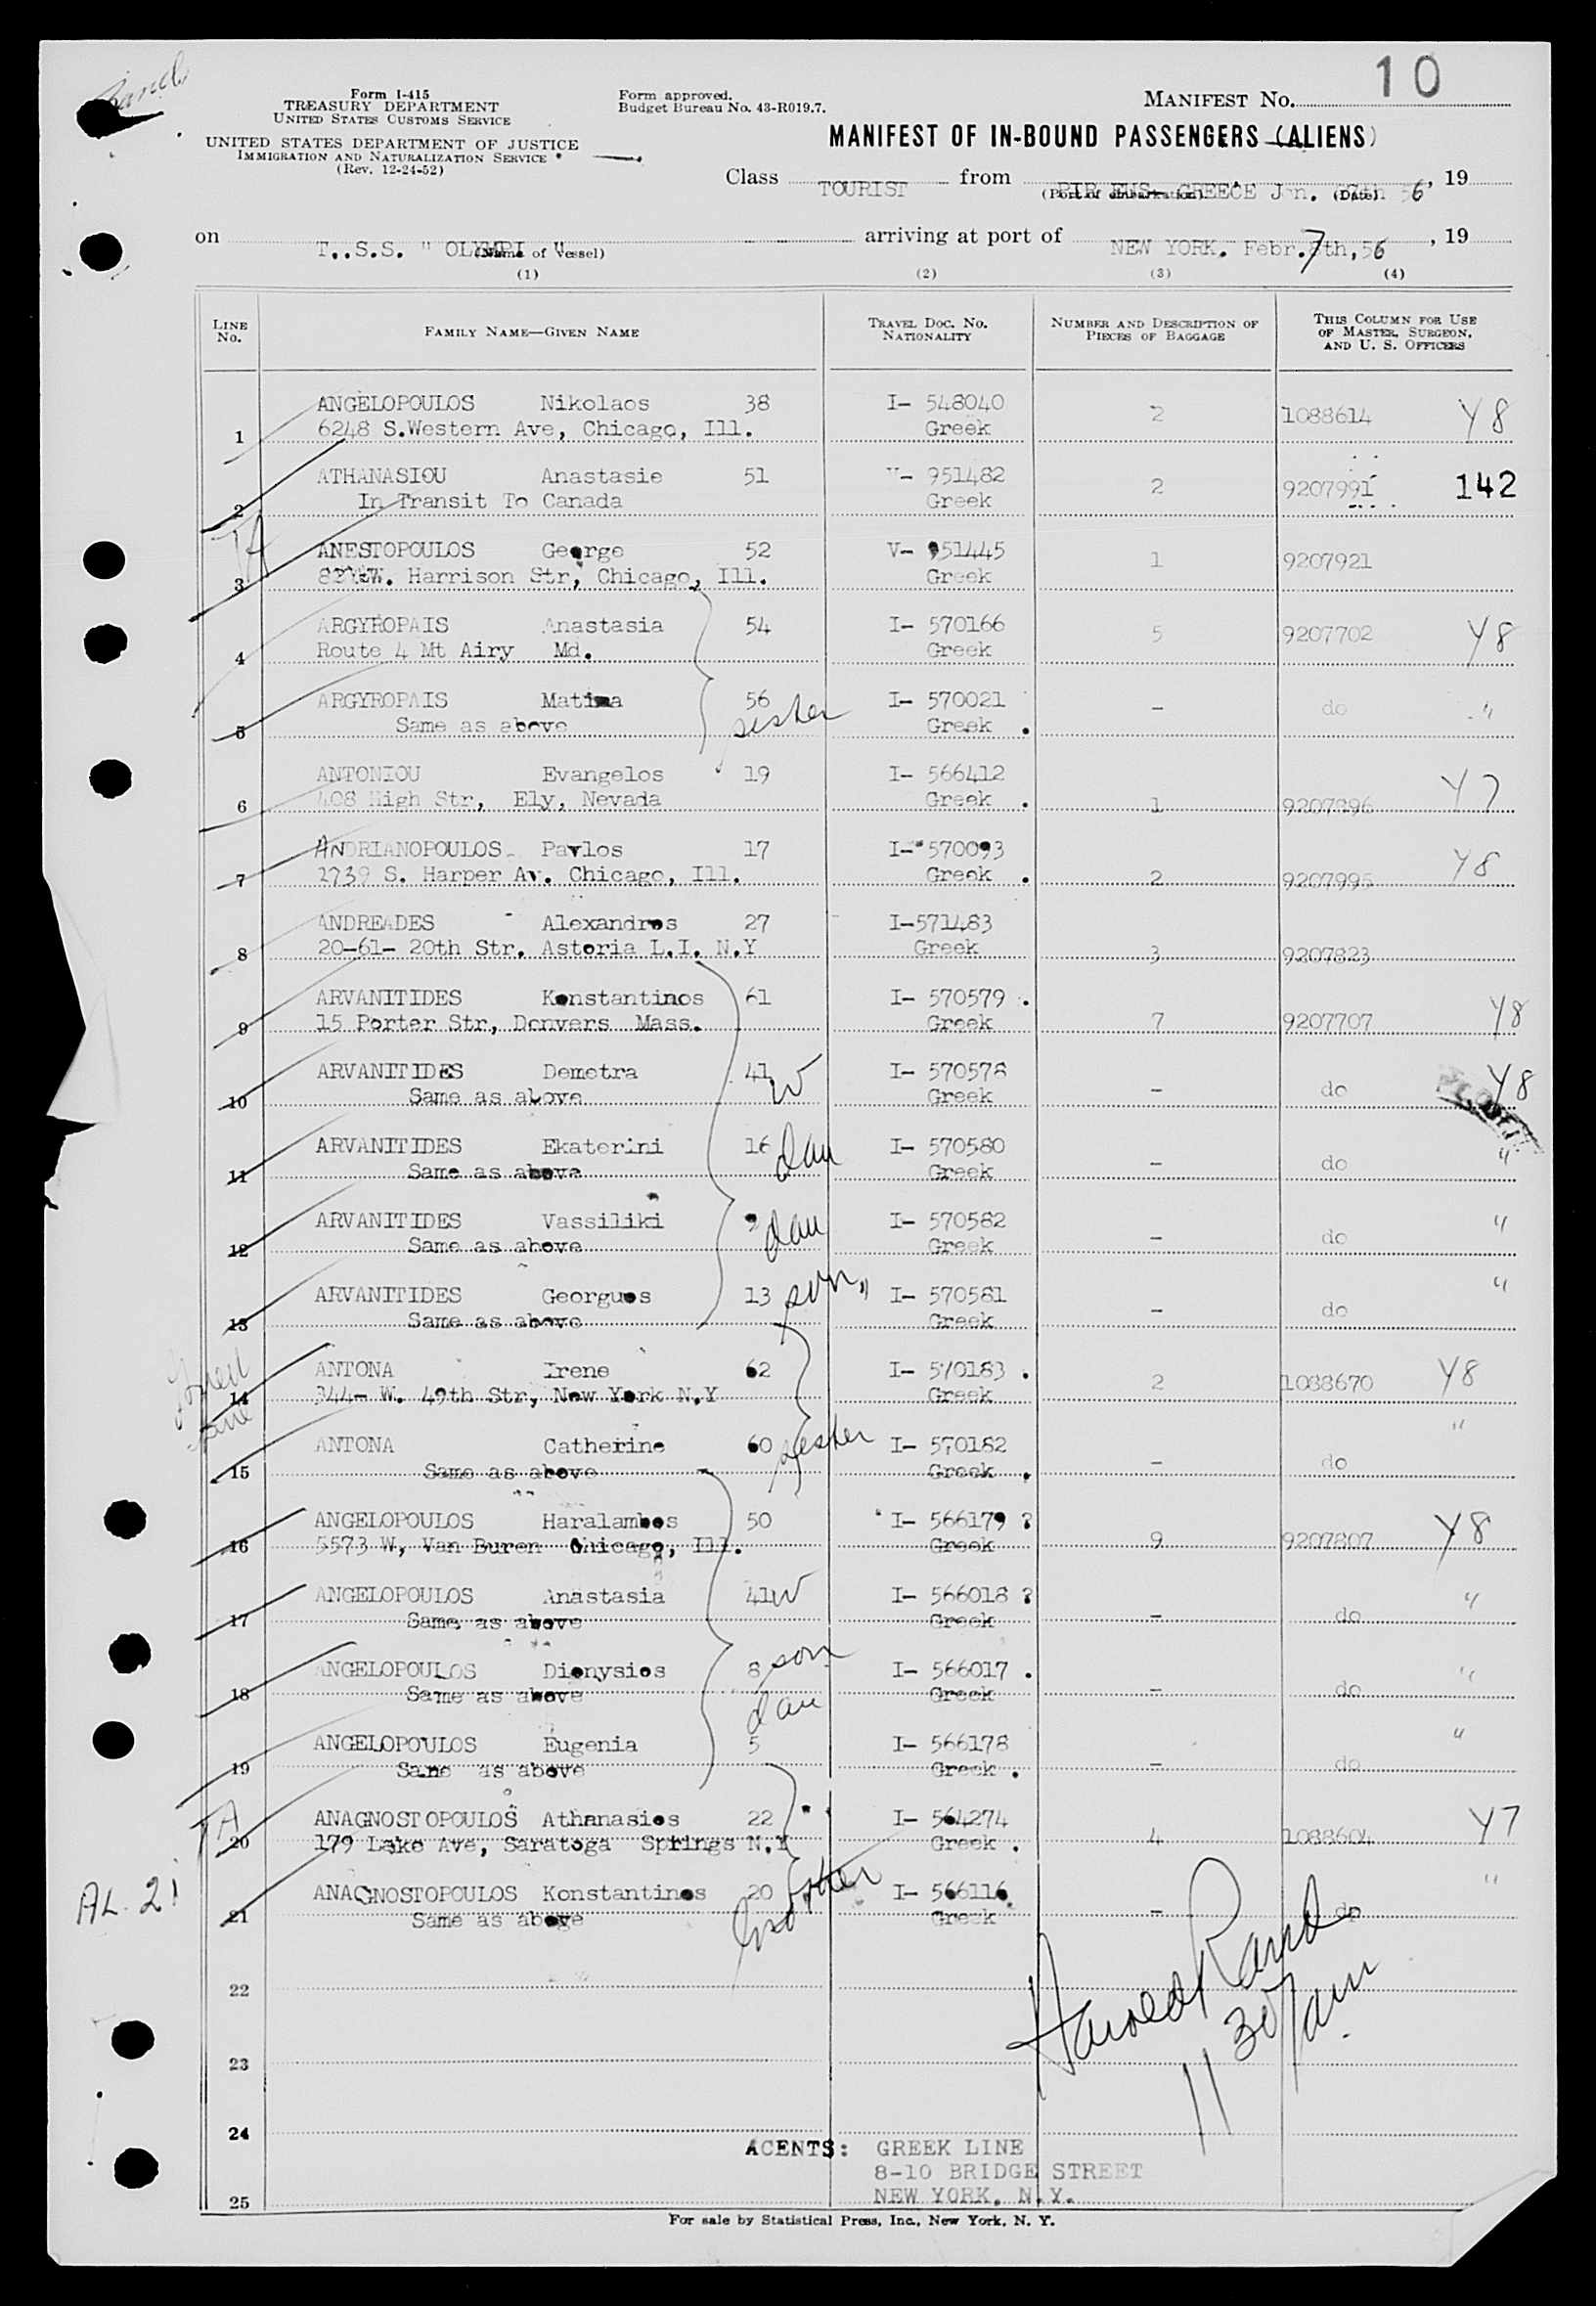 Form I-415
TREASURY DEPARTMENT
UNITED STATES CUSTOMS SERVICE
UNITED STATES DEPARTMENT OF JUSTICE
IMMIGRATION AND NATURALIZATION SERVICE
(Rev. 12-24-52)
Form approved.
Budget Bureau No. 43-R019.7.
MANIFEST No. 10
MANIFEST OF IN-BOUND PASSENGERS (ALIENS)
Class TOURIST from GREECE 56, 19
(Port of embarkation) (Date)
on T..S.S. " OLYMPI " arriving at port of NEW YORK. Febr. 7th, 56, 19
(Name of Vessel)
(1) (2) (3) (4)
LINE No. FAMILY NAME—GIVEN NAME TRAVEL DOC. No. NATIONALITY NUMBER AND DESCRIPTION OF PIECES OF BAGGAGE THIS COLUMN FOR USE OF MASTER, SURGEON, AND U. S. OFFICERS
ANGELOPOULOS Nikolaos 38 I- 548040 2 1088614 Y8
1 6248 S.Western Ave, Chicago, Ill. Greek
ATHANASIOU Anastasie 51 V- 951482 2 9207991 142
2 In Transit To Canada Greek
TA
ANESTOPOULOS George 52 V- 951445 1 9207921
3 W. Harrison Str, Chicago, Ill. Greek
ARGYROPAIS Anastasia 54 I- 570166 5 9207702 Y8
4 Route 4 Mt Airy Md. Greek
ARGYROPAIS Matina 56 sister I- 570021 - do "
5 Same as above Greek
ANTONIOU Evangelos 19 I- 566412
6 408 High Str, Ely, Nevada Greek 1 9207896 Y7
ANDRIANOPOULOS Pavlos 17 I- 570093
7 1739 S. Harper Av. Chicago, Ill. Greek 2 9207995 Y8
ANDREADES Alexandros 27 I-571483
8 20-61- 20th Str. Astoria L.I. N.Y Greek 3 9207823
ARVANITIDES Konstantinos 61 I- 570579
9 15 Porter Str, Denvers Mass. Greek 7 9207707 Y8
ARVANITIDES Demetra 41 W I- 570578
10 Same as above Greek - do Y8
ARVANITIDES Ekaterini 16 dau I- 570580
11 Same as above Greek - do "
ARVANITIDES Vassiliki 9 dau I- 570582
12 Same as above Greek - do "
ARVANITIDES Georguos 13 son I- 570581
13 Same as above Greek - do "
ANTONA Irene 62 I- 570183
14 344- W. 49th Str, New York N.Y Greek 2 1088670 Y8
ANTONA Catherine 60 sester I- 570182
15 Same as above Greek - do "
ANGELOPOULOS Haralambos 50 I- 566179 ?
16 5573 W, Van Buren Chicago, Ill. Greek 9 9207807 Y8
ANGELOPOULOS Anastasia 41 W I- 566018 ?
17 Same as above Greek - do "
ANGELOPOULOS Dionysios 8 son I- 566017
18 Same as above dau Greek - do "
ANGELOPOULOS Eugenia 5 I- 566178
19 Same as above Greek - do "
TA
ANAGNOSTOPOULOS Athanasios 22 I- 564274
20 179 Lake Ave, Saratoga Springs N.Y Greek 4 1088604 Y7
AL. 21
ANAGNOSTOPOULOS Konstantinos 20 brother I- 566116
21 Same as above Greek - do "
Harold Rand
22
11 30/am
23
24
AGENTS: GREEK LINE
8-10 BRIDGE STREET
25 NEW YORK, N.Y.
For sale by Statistical Press, Inc., New York, N. Y.